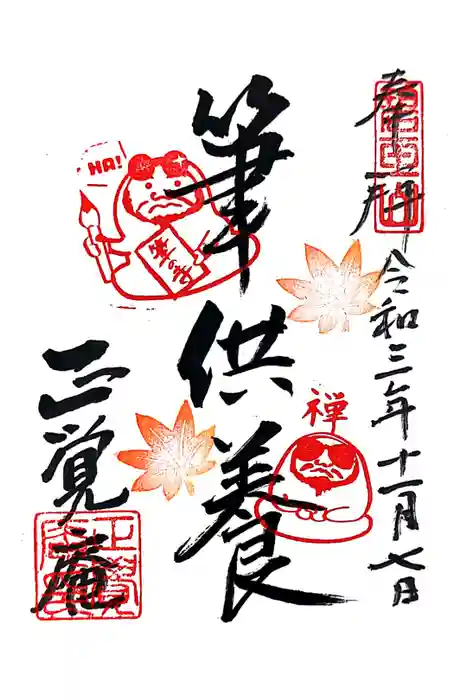 奉拝 令和三年十一月七日
筆供養
HA!
筆の寺
禅
正覚庵